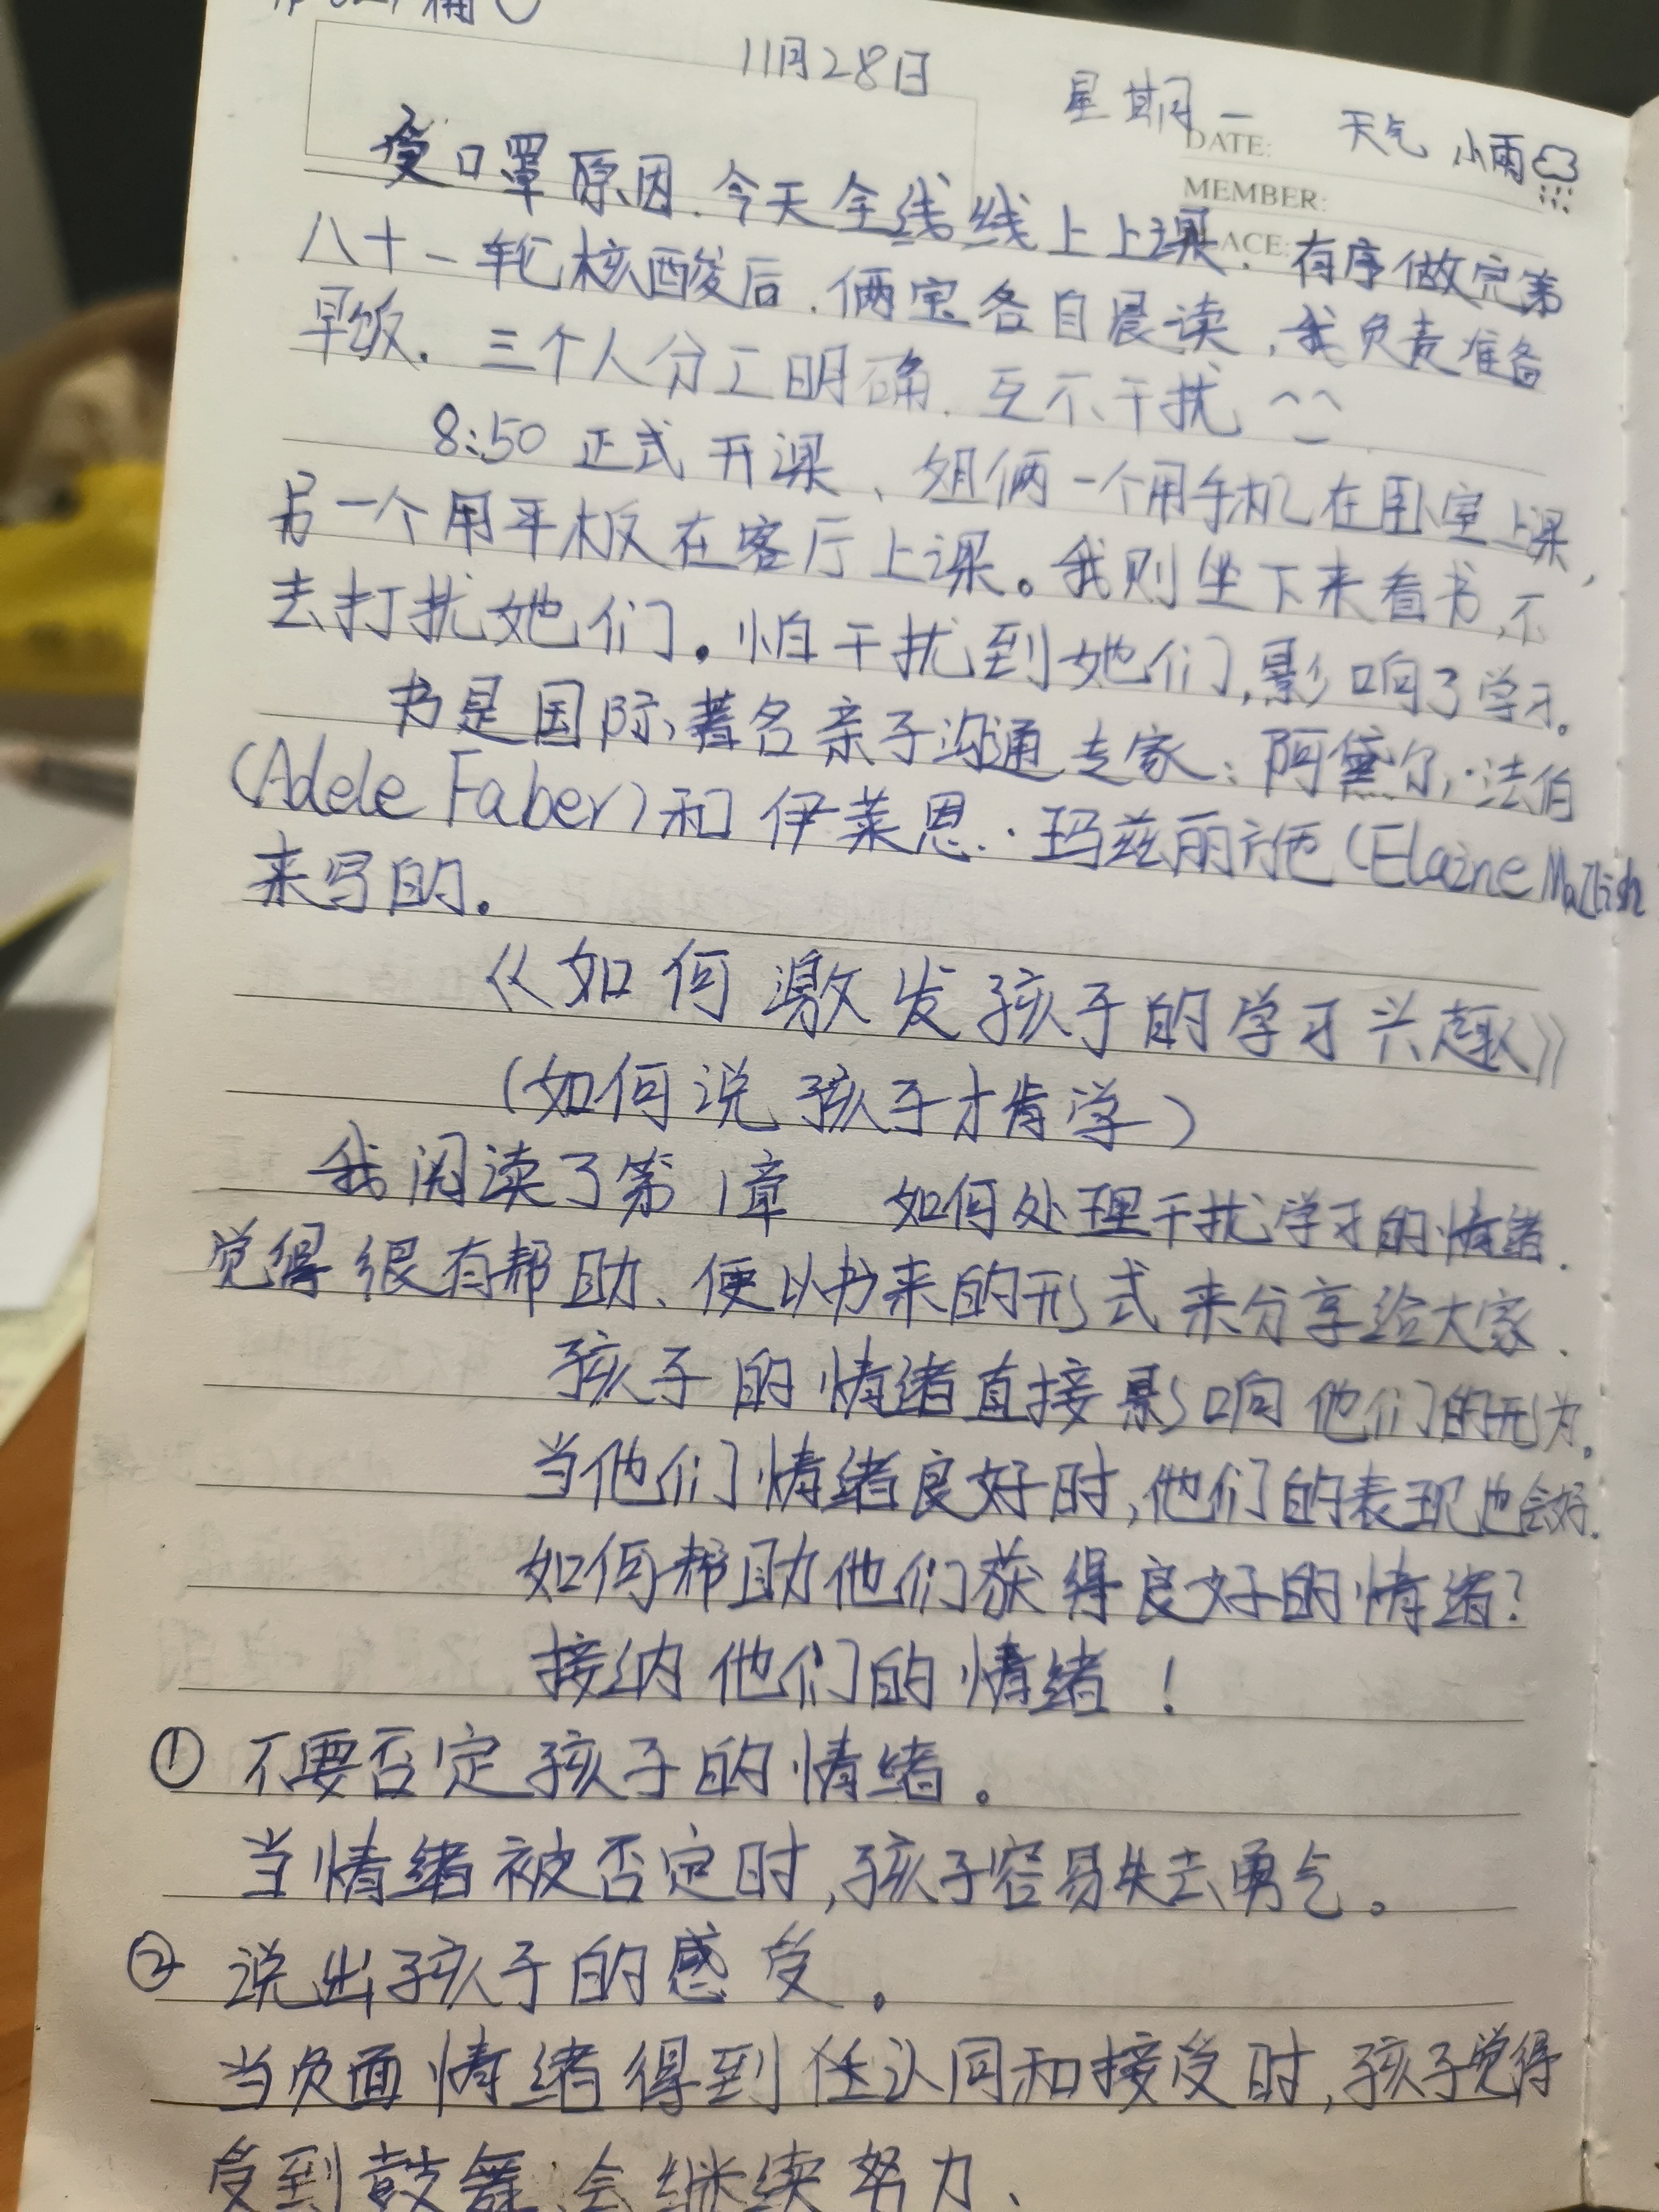 11月28日 星期一 天气 小雨
DATE:
MEMBER:
受口罩原因,今天全线线上上课,有序做完第
八十一轮核酸后,俩宝各自晨读,我负责准备
早饭。三个人分工明确,互不干扰
8:50 正式开课、姐俩一个用手机在卧室上课,
另一个用平板在客厅上课。我则坐下来看书,不
去打扰她们。怕干扰到她们,影响了学习。
书是国际著名亲子沟通专家:阿黛尔·法伯
(Adele Faber)和伊莱恩·玛兹丽施(Elaine Mazlish
来写的。
《如何激发孩子的学习兴趣》
(如何说孩子才肯学)
我阅读了第1章 如何处理干扰学习的情绪.
觉得很有帮助、便以书来的形式来分享给大家.
孩子的情绪直接影响他们的行为。
当他们情绪良好时,他们的表现也会好.
如何帮助他们获得良好的情绪?
接纳他们的情绪!
① 不要否定孩子的情绪。
当情绪被否定时,孩子容易失去勇气。
② 说出孩子的感受。
当负面情绪得到认同和接受时,孩子觉得
受到鼓舞,会继续努力、